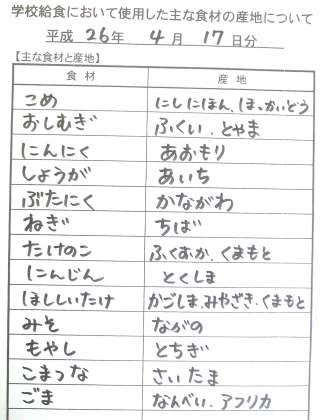 学校給食において使用した主な食材の産地について
平成 26年 4月 17日分
【主な食材と産地】
食材 産地
こめ にしにほん、ほっかいどう
おしむぎ ふくい、とやま
にんにく あおもり
しょうが あいち
ぶたにく かながわ
ねぎ ちば
たけのこ ふくおか、くまもと
にんじん とくしま
ほししいたけ かごしま、みやざき、くまもと
みそ ながの
もやし とちぎ
こまつな さいたま
ごま なんべい、アフリカ